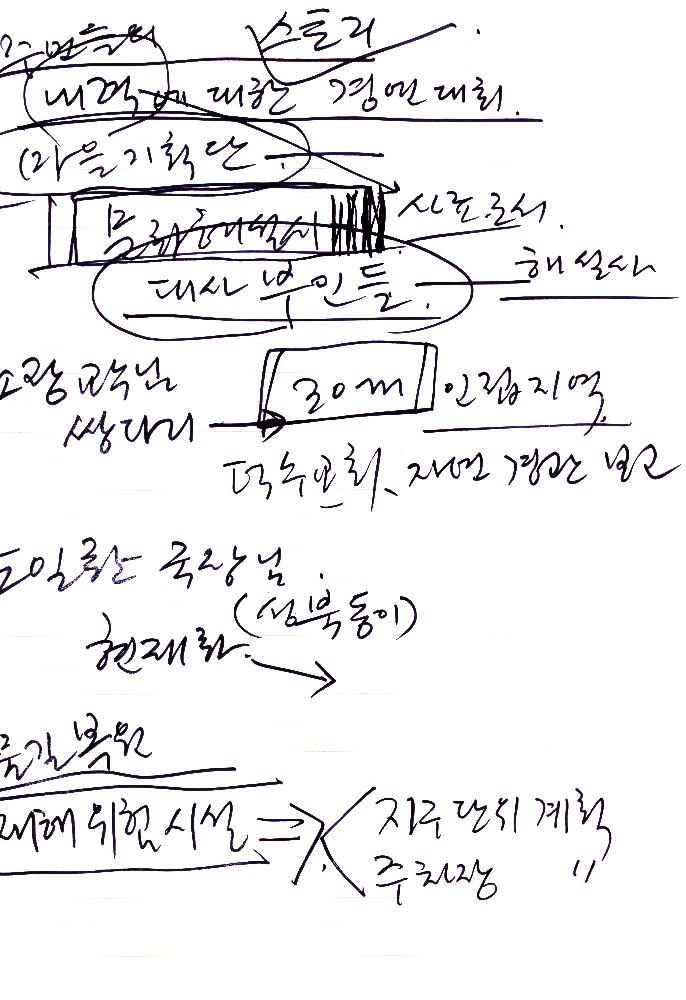 주민들의 스토리
내력에 대한 경연대회.
(마을기획단.
문화해설사 사표로서.
대사부인들. 해설사
소장 교수님 30m 인접지역.
쌍다리
덕수교회, 자연 경관 보고
도일환 국장님.
(성북동이)
현재화.
물길복원
재해위험시설 지구단위계획
주차장 〃